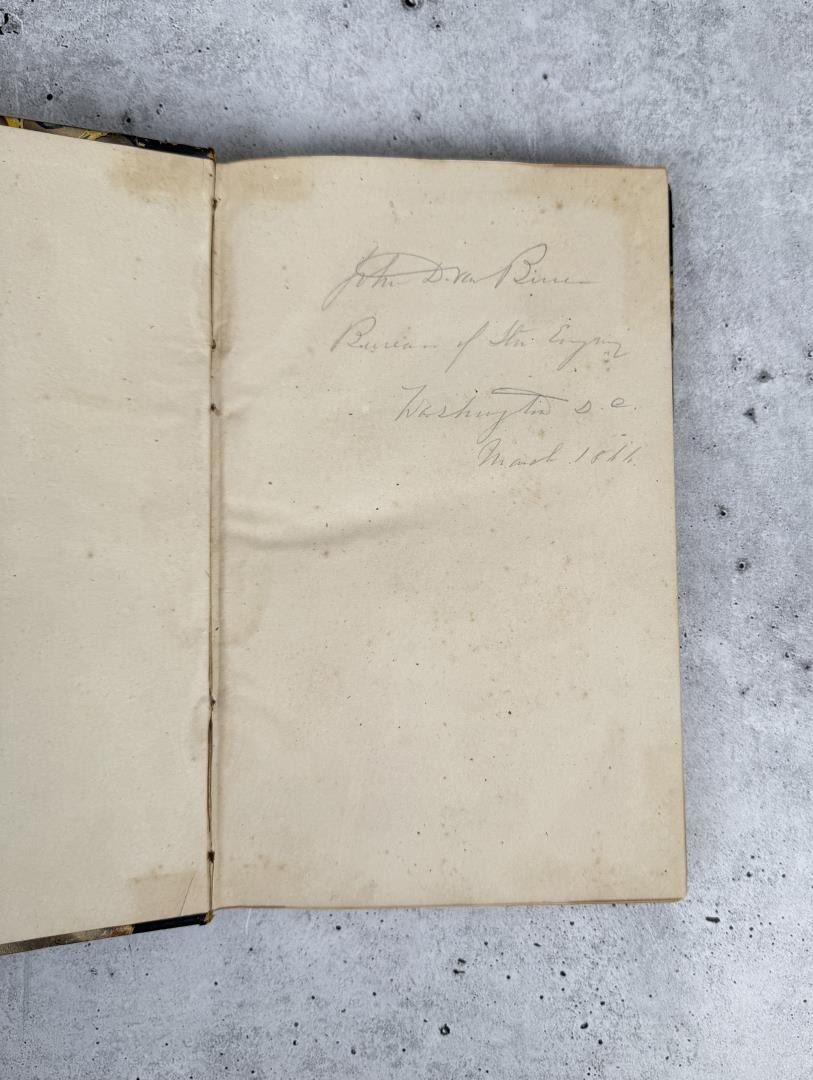 John D. Van Buren
Bureau of Stm. Engrng
Washington D.C.
March 1866.